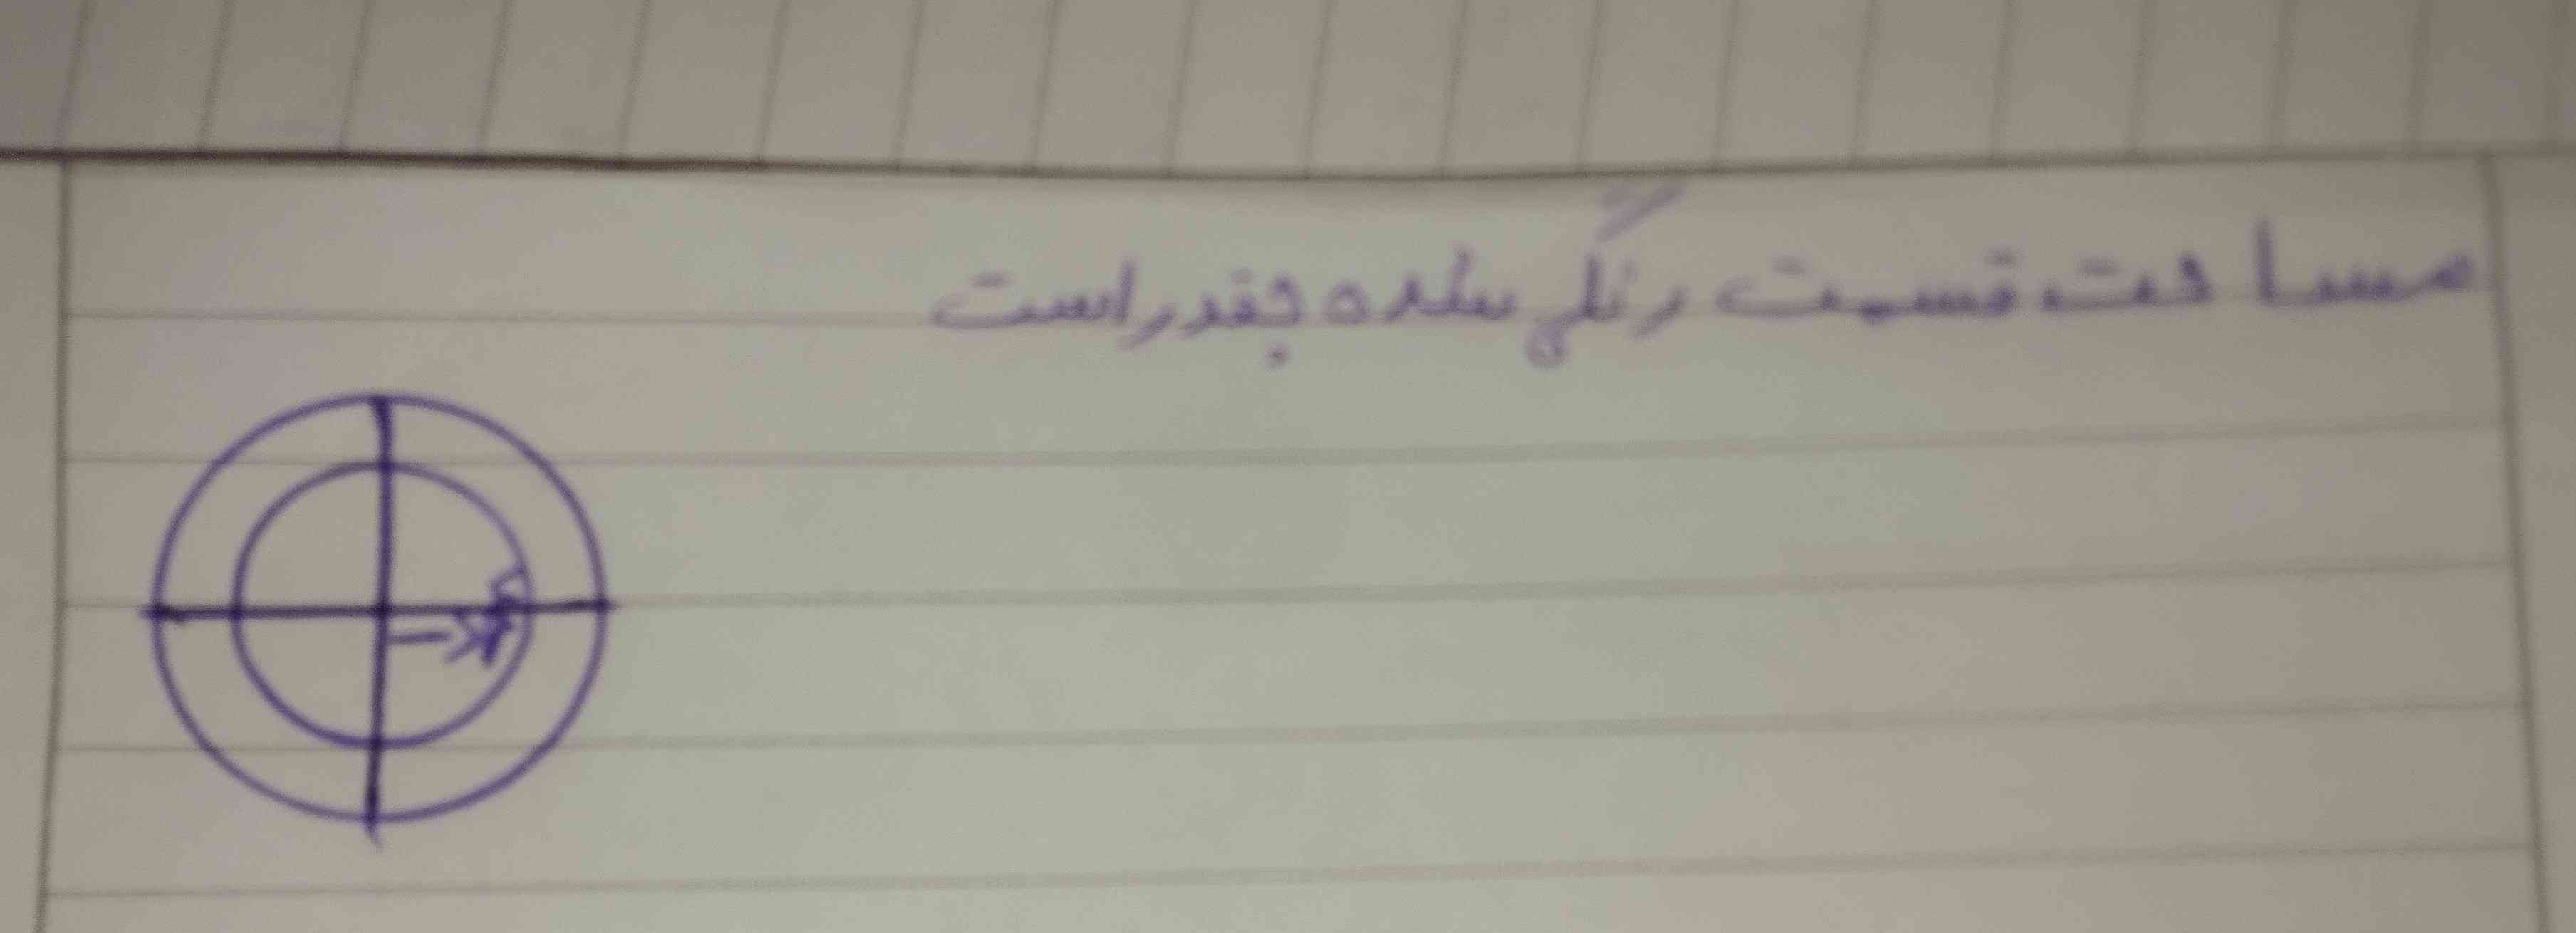 مساحت قسمت رنگی شده چقدر است